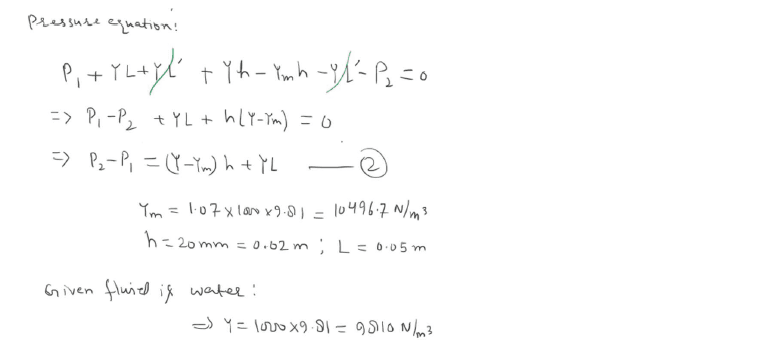 Pressure equation:
P₁ + γL + γL' + γh - γₘh - γL' - P₂ = 0
=> P₁-P₂ + γL + h(γ-γₘ) = 0
=> P₂-P₁ = (γ-γₘ)h + γL —— ②
γₘ = 1.07 x 1000 x 9.81 = 10496.7 N/m³
h = 20mm = 0.02m ; L = 0.05 m
Given fluid is water:
=> γ = 1000 x 9.81 = 9810 N/m³